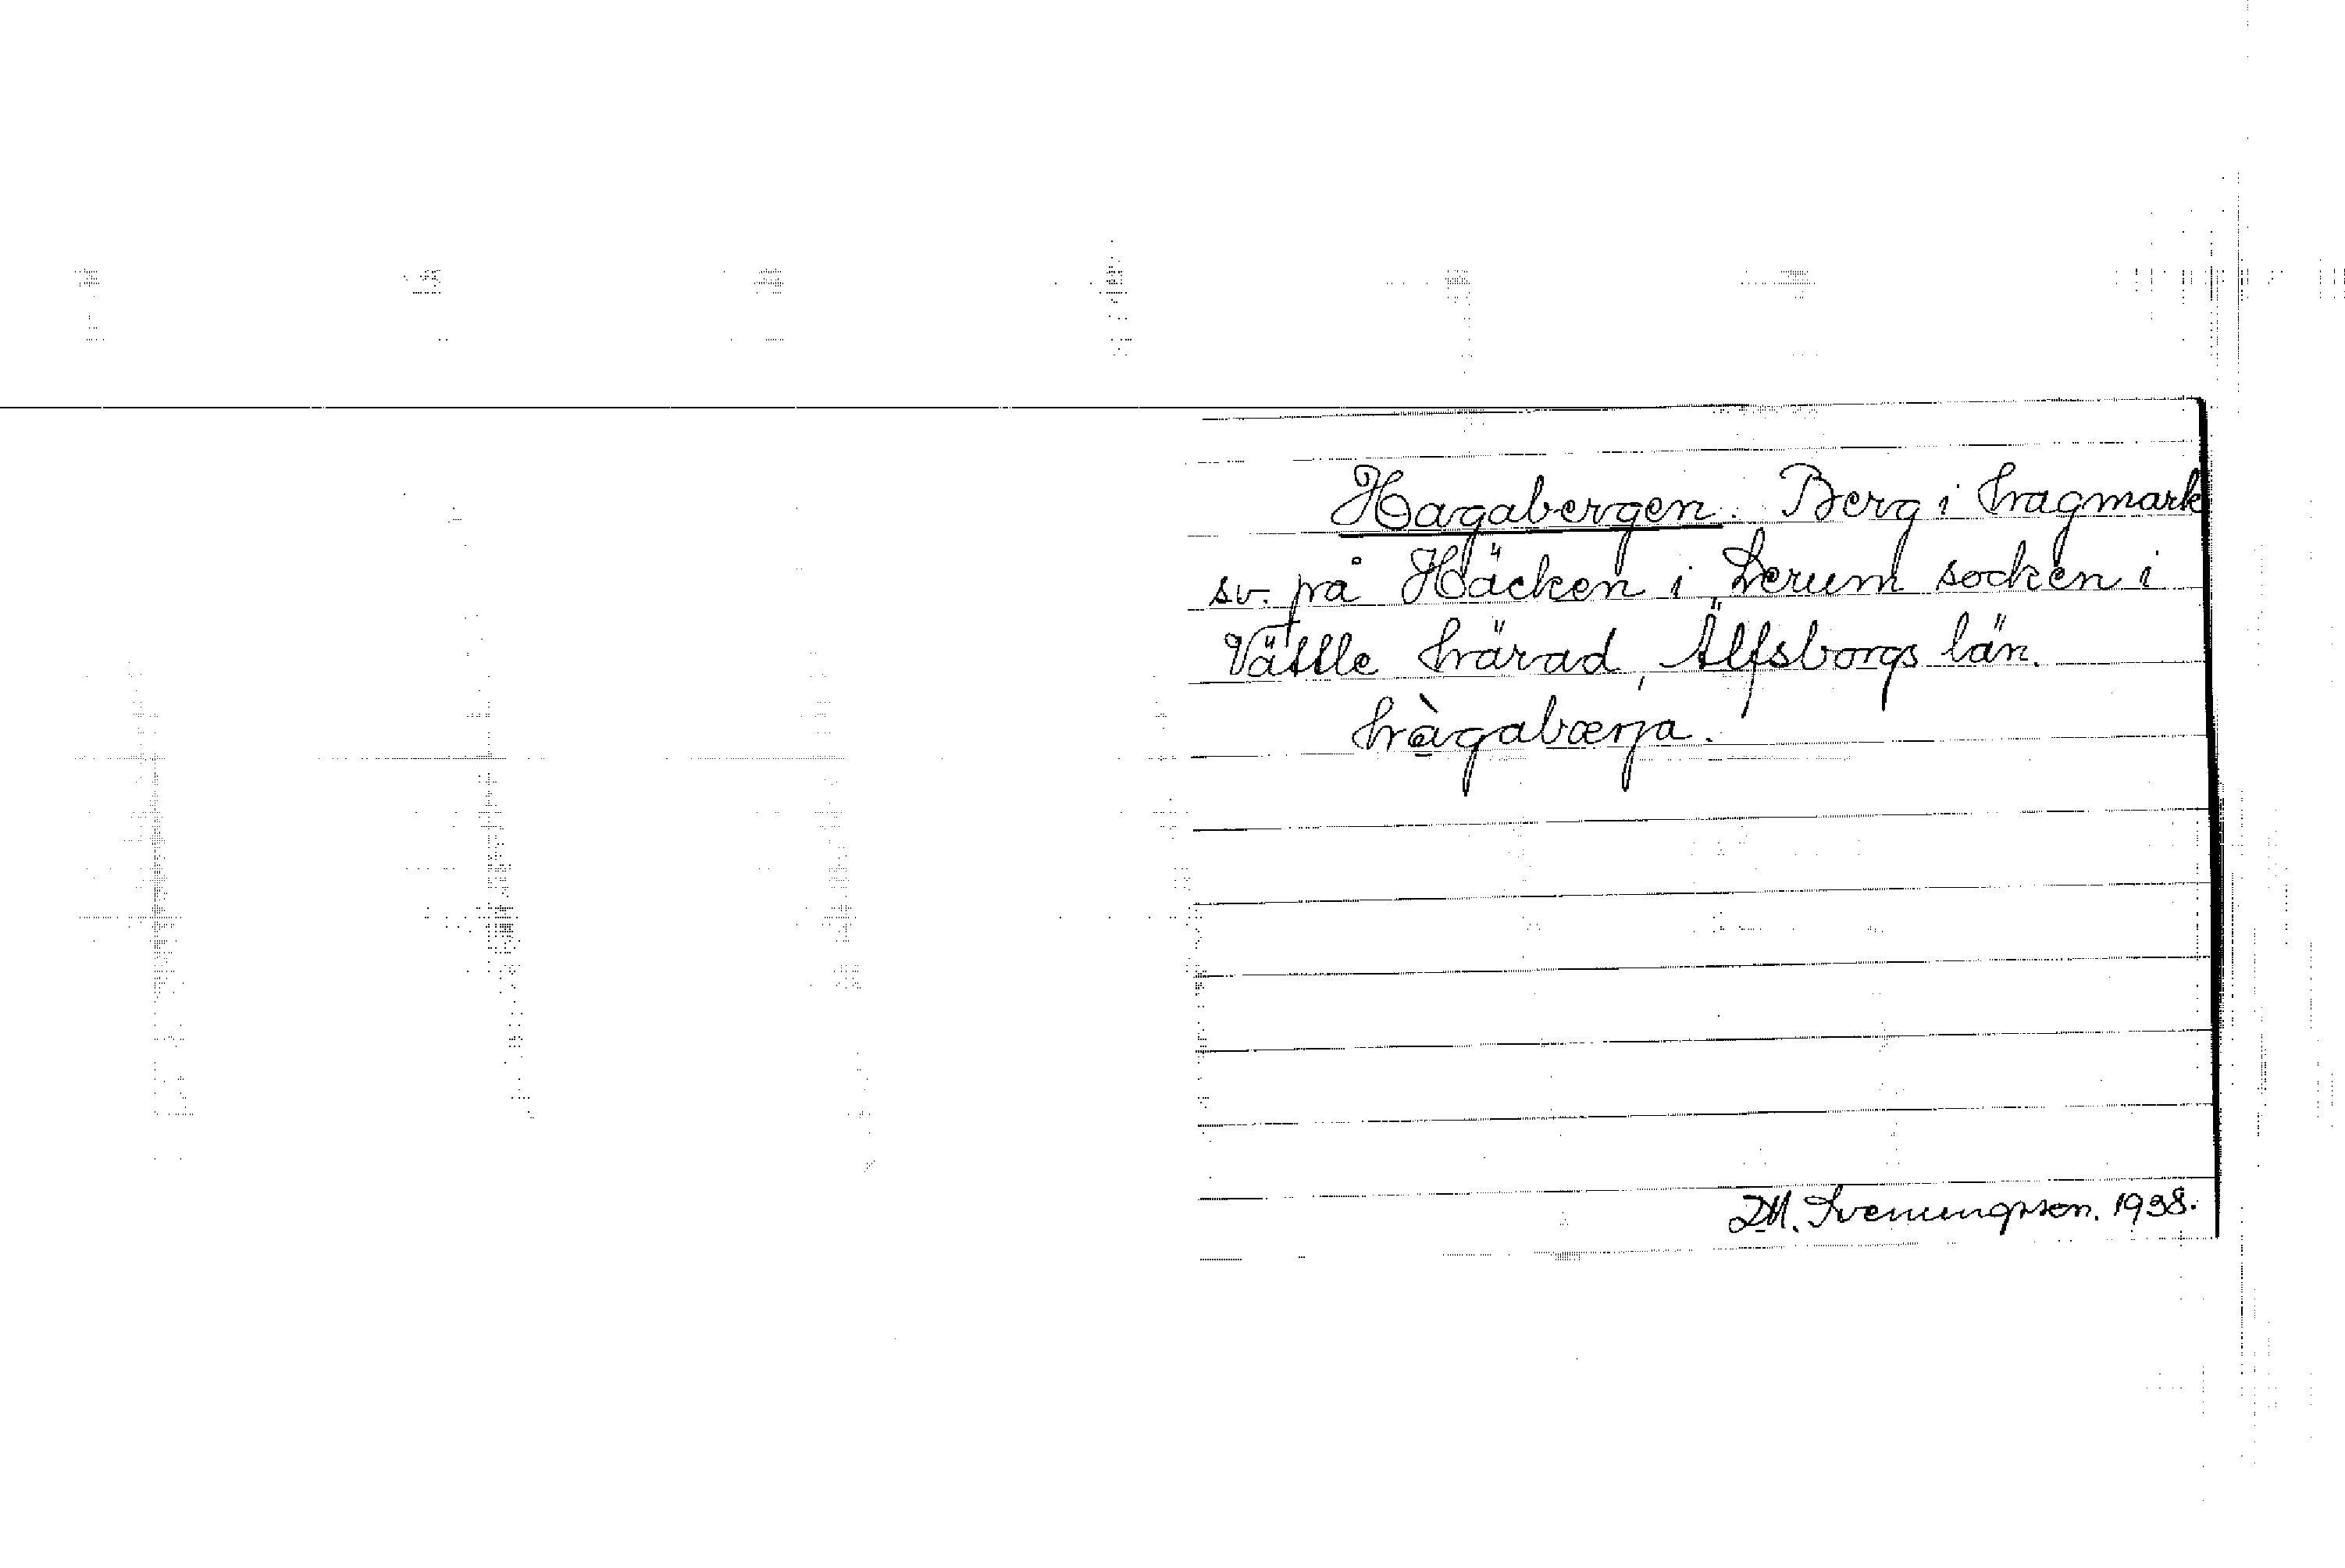 Hagabergen. Berg i hagmark
sv. på Häcken i Lerum socken i
Vättle härad, Älfsborgs län.
hàgabærja.
D.M. Svenungsson. 1938.